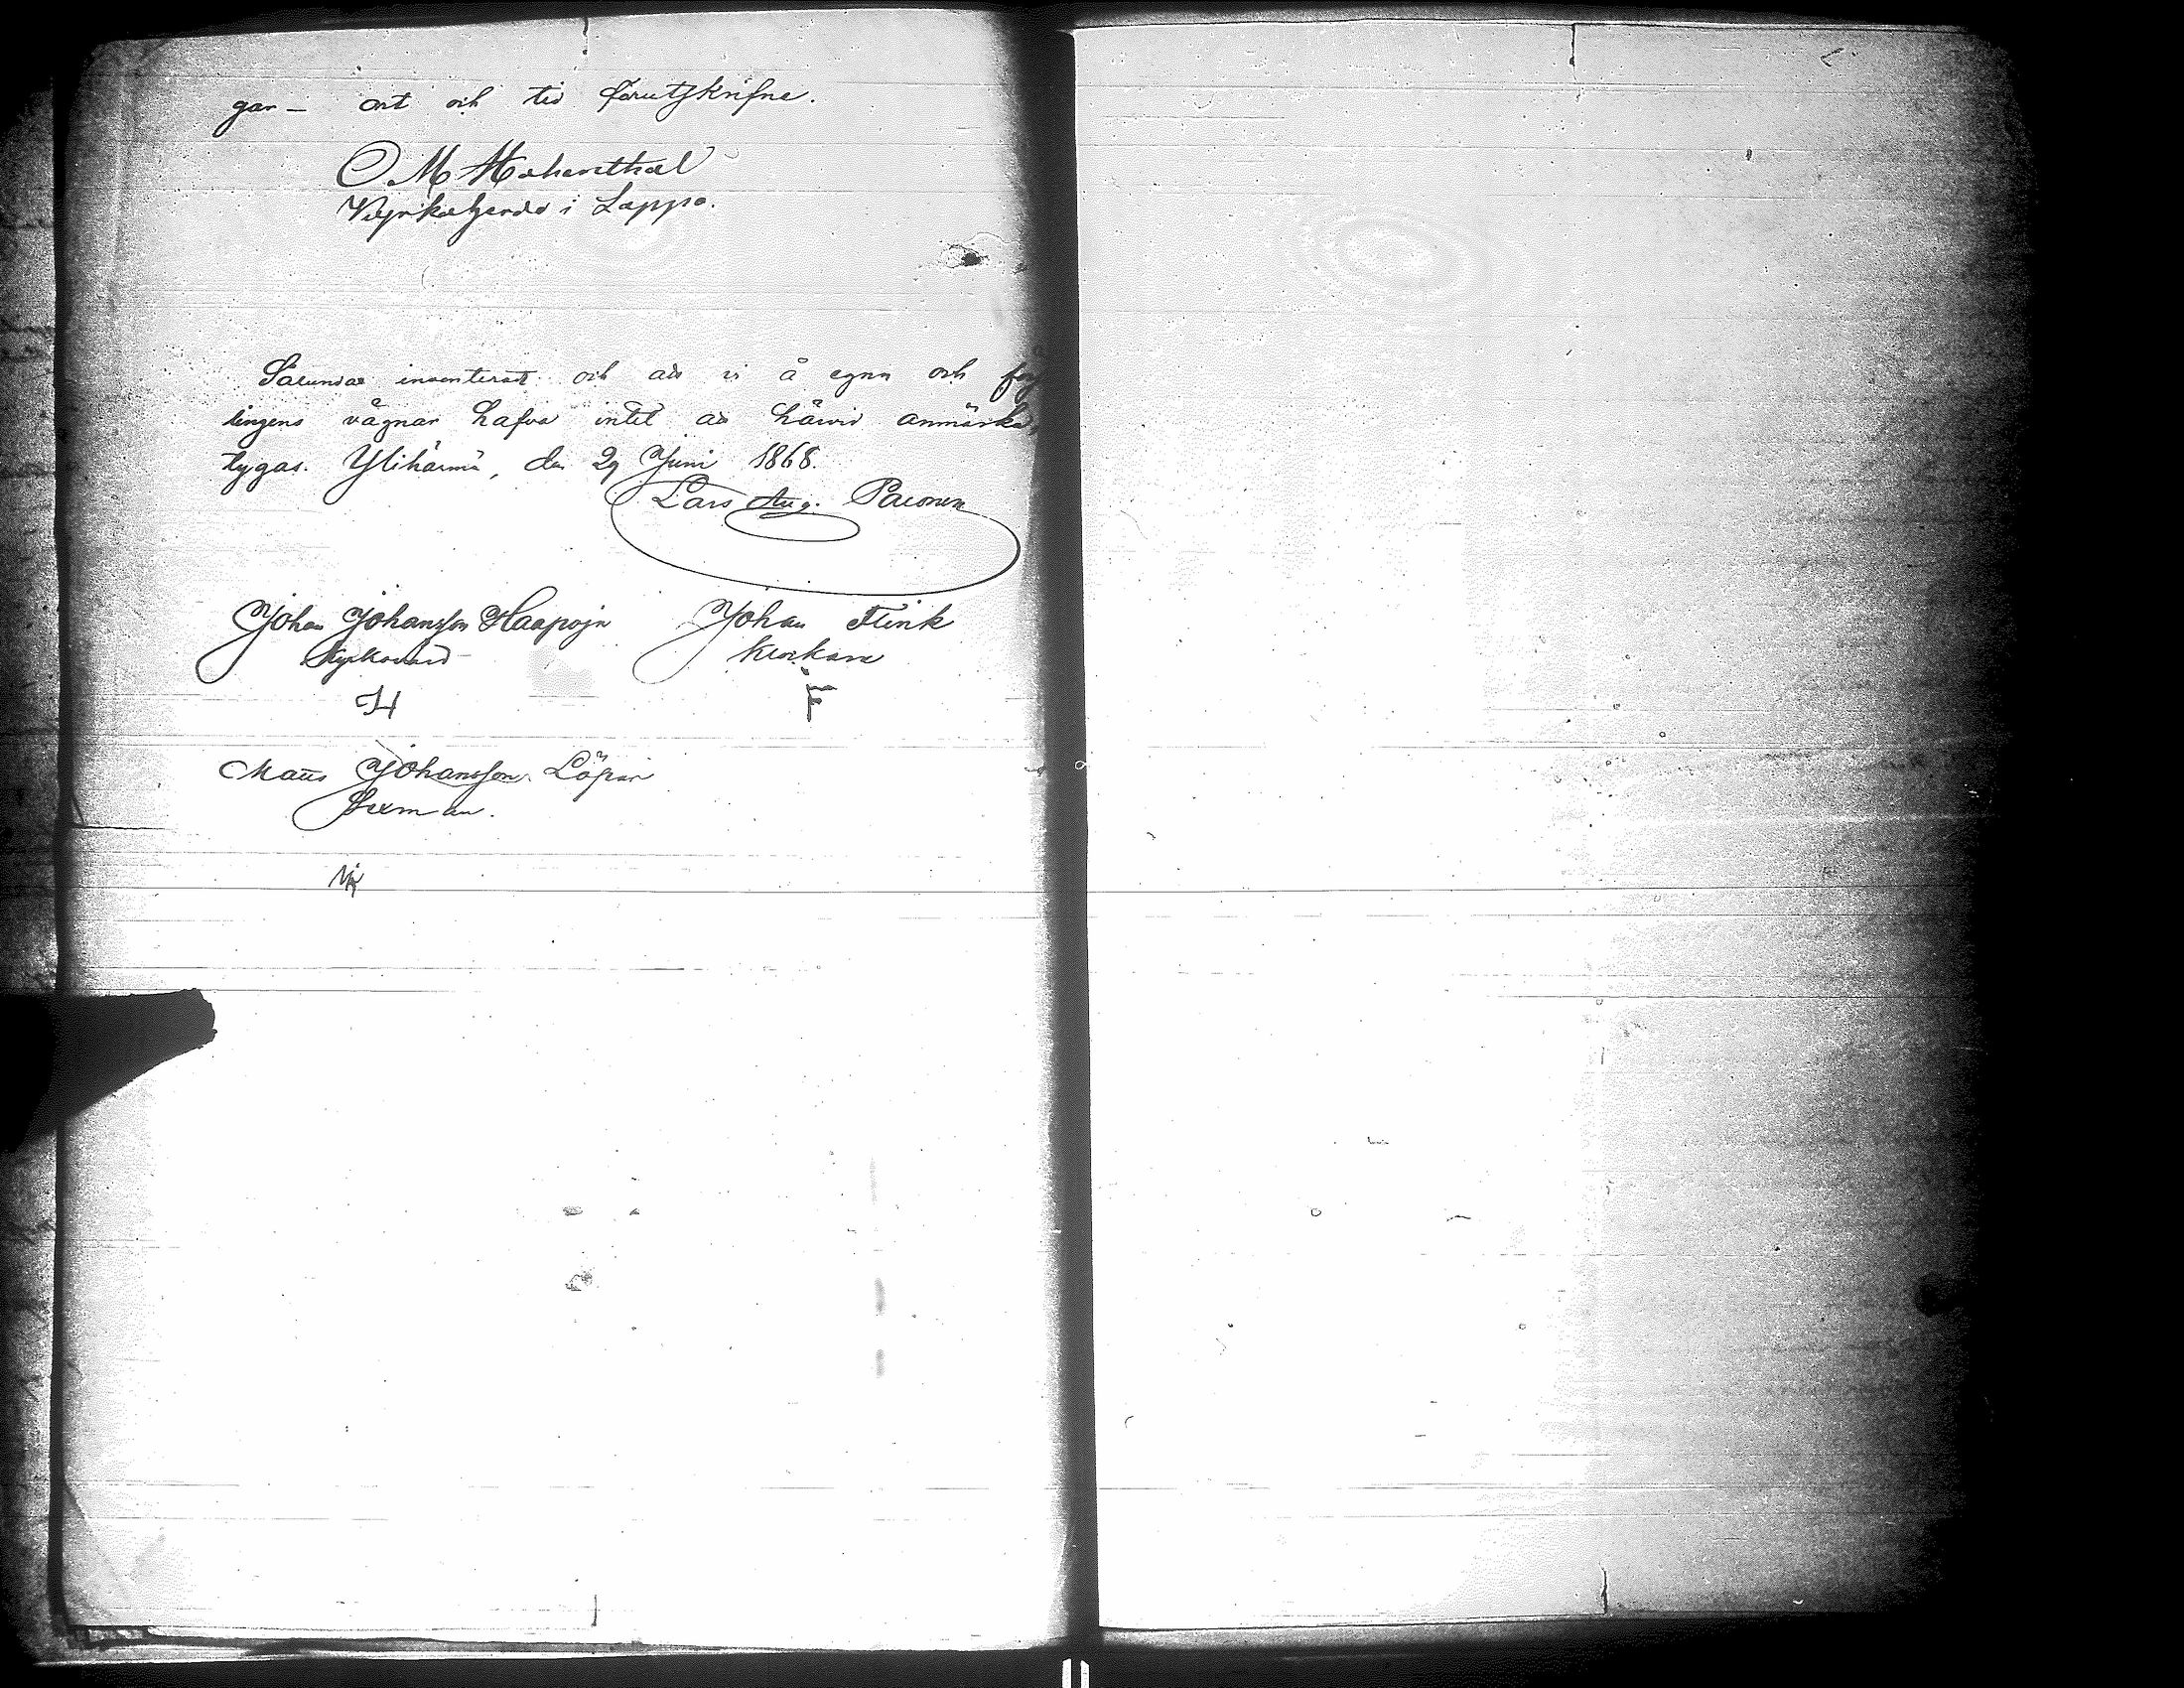 gar – ort och tid förutskrifne.
C M Hohenthal
Kyrkoherde i Lappo.
Sålundae inventerat och att vi å egna och för
lingens vägnar hafva intet att härvid anmärka,
tygas. Ylihärmä, den 29 Juni 1868.
Lars Aug. Páconen
Johan Johansson Haapoja Johan Flink
Kyrkovärd Klockare
H F
Matts Johansson Löpar
Sexman.